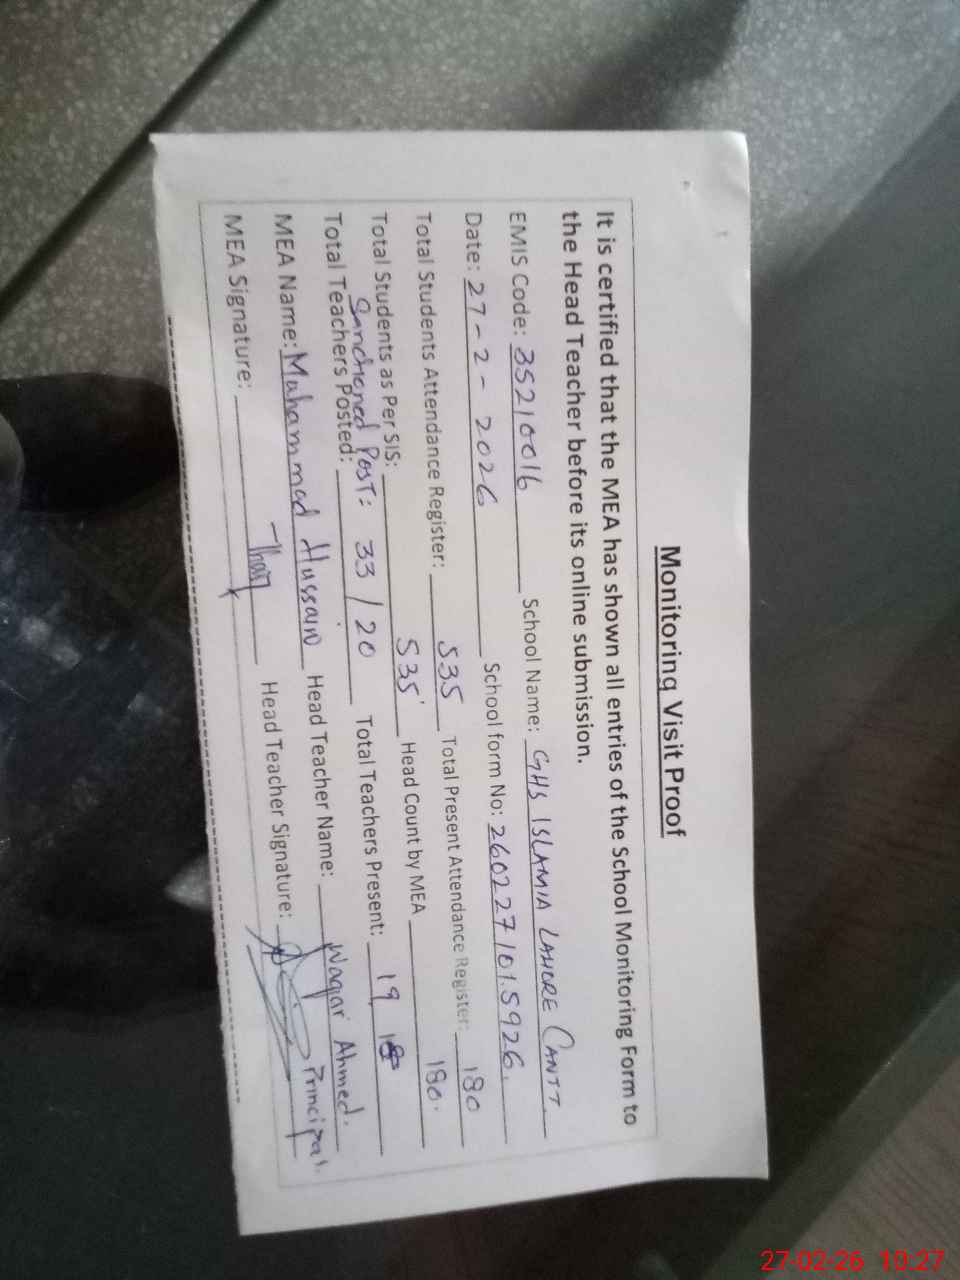 Monitoring Visit Proof
It is certified that the MEA has shown all entries of the School Monitoring Form to
the Head Teacher before its online submission.
EMIS Code: 35210016 School Name: GHS ISLAMIA LAHORE CANTT
Date: 27-2-2026 School form No: 260227101.5926.
Total Students Attendance Register: 535 Total Present Attendance Register: 180
Total Students as Per SIS: 535 Head Count by MEA 180.
Sanctioned Post: 33/20
Total Teachers Posted: Total Teachers Present: 19
MEA Name: Muhammad Hussain Head Teacher Name: Waqar Ahmed.
MEA Signature: Head Teacher Signature: Principal.
27-02-26 10:27